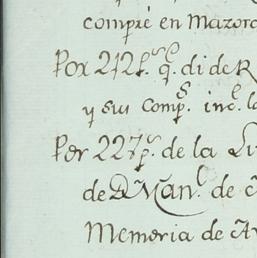 compré en Mazorc
Por 212f.s q.e di de R
y sus Comp.s inc.e l
Per 227p.s de la Li
de D.n Man.l de c
Memoria de A